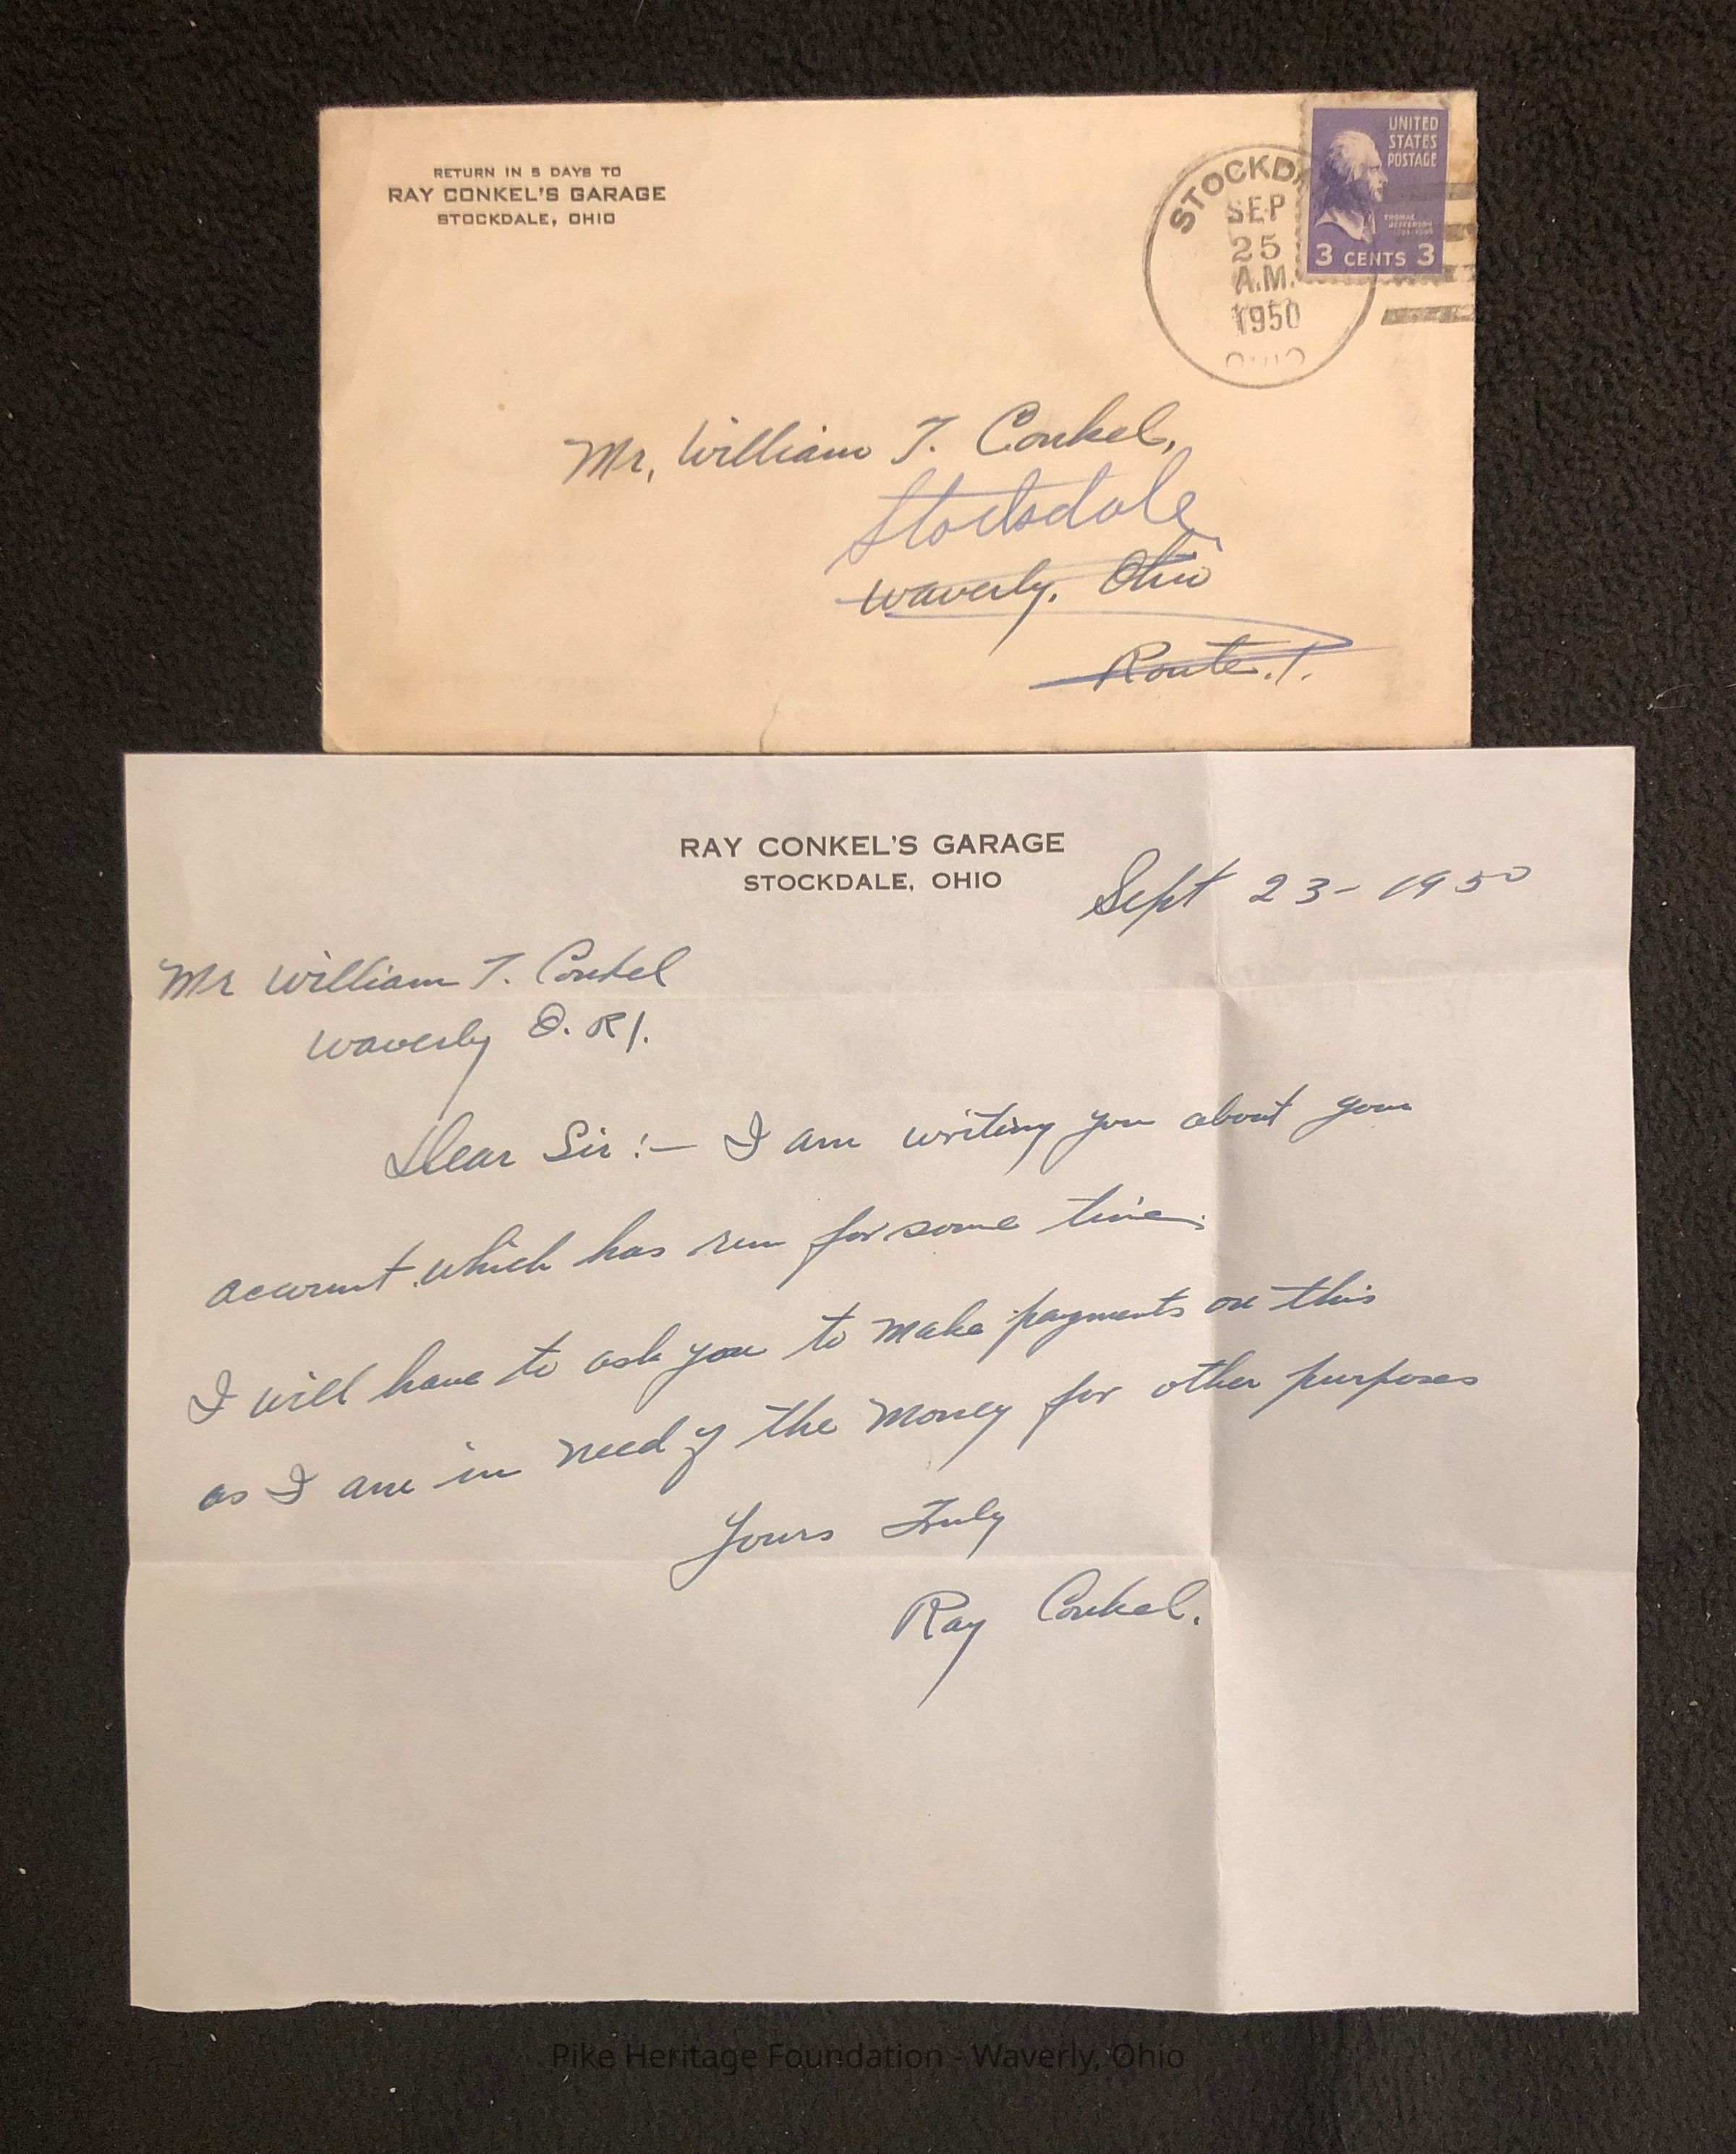 RETURN IN 5 DAYS TO
RAY CONKEL'S GARAGE
STOCKDALE, OHIO
STOCKD
SEP
25
A.M.
1950
OHIO
UNITED
STATES
POSTAGE
THOMAS
JEFFERSON
3 CENTS 3
Mr, William T. Conkel,
Stocksdale
Waverly, Ohio
Route.1.
RAY CONKEL'S GARAGE
STOCKDALE, OHIO
Sept 23-1950
Mr William T. Conkel
Waverly O. R1.
Dear Sir:— I am writing you about your
account which has run for some time.
I will have to ask you to make payments on this
as I am in need of the money for other purposes
Yours Truly
Ray Conkel.
Pike Heritage Foundation - Waverly, Ohio